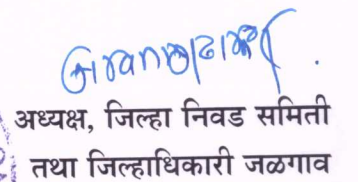 अध्यक्ष, जिल्हा निवड समिती
तथा जिल्हाधिकारी जळगाव